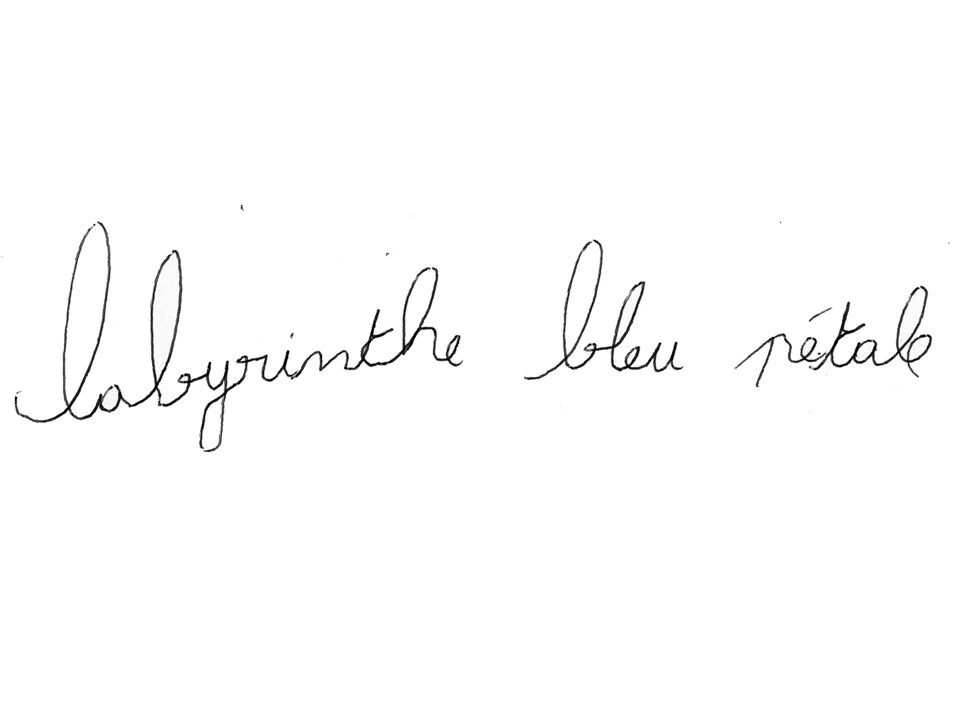 labyrinthe bleu pétale